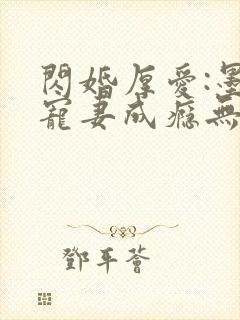 閃婚厚愛:墨
寵妻成癮無
鄧平薈